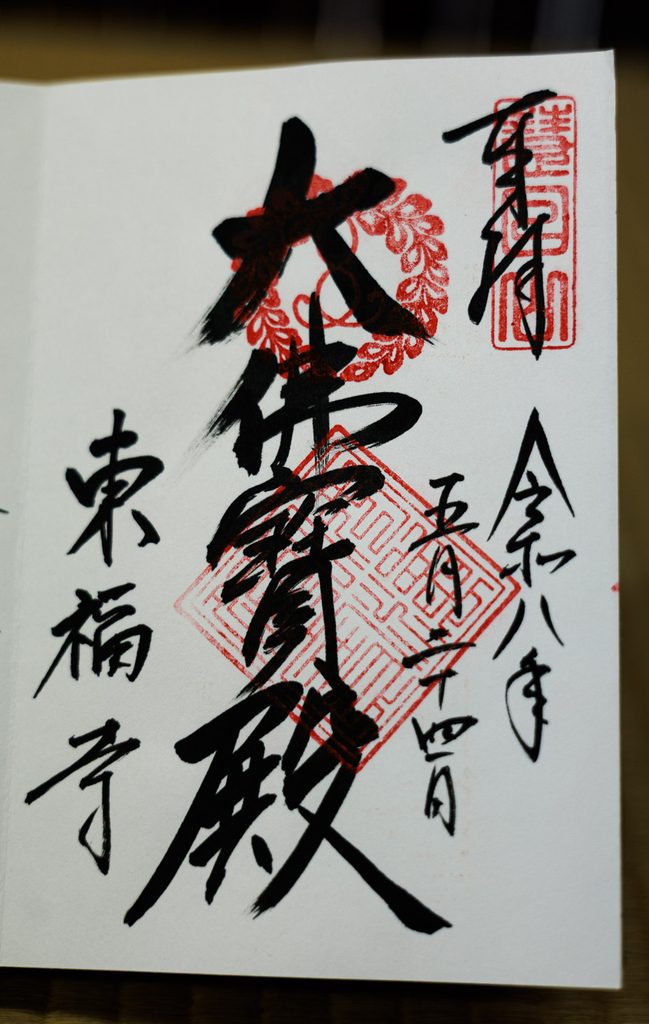 奉拝
令和八年
五月二十四日
大佛寶殿
東福寺
慧日山